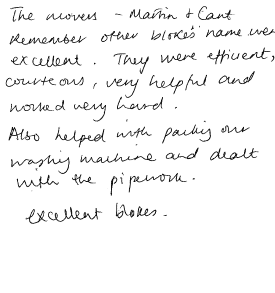 The movers - Martin & Cant
Remember other blokes' name were
excellent. They were efficient,
courteous, very helpful and
worked very hard.
Also helped with packing our
washing machine and dealt
with the pipework.
excellent blokes.